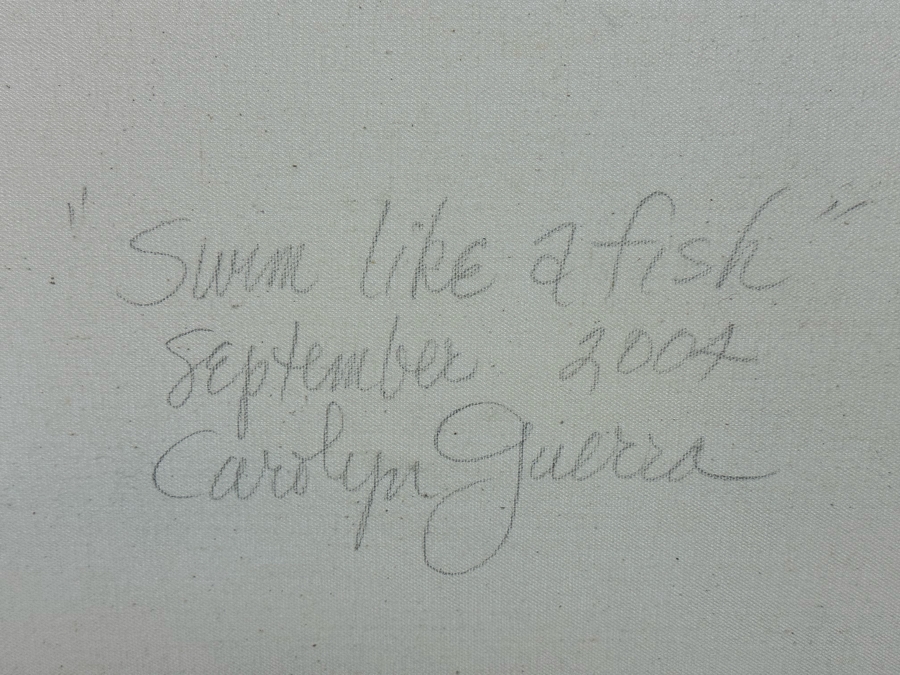 "Swim like a fish"
September 2004
Carolyn Guerra